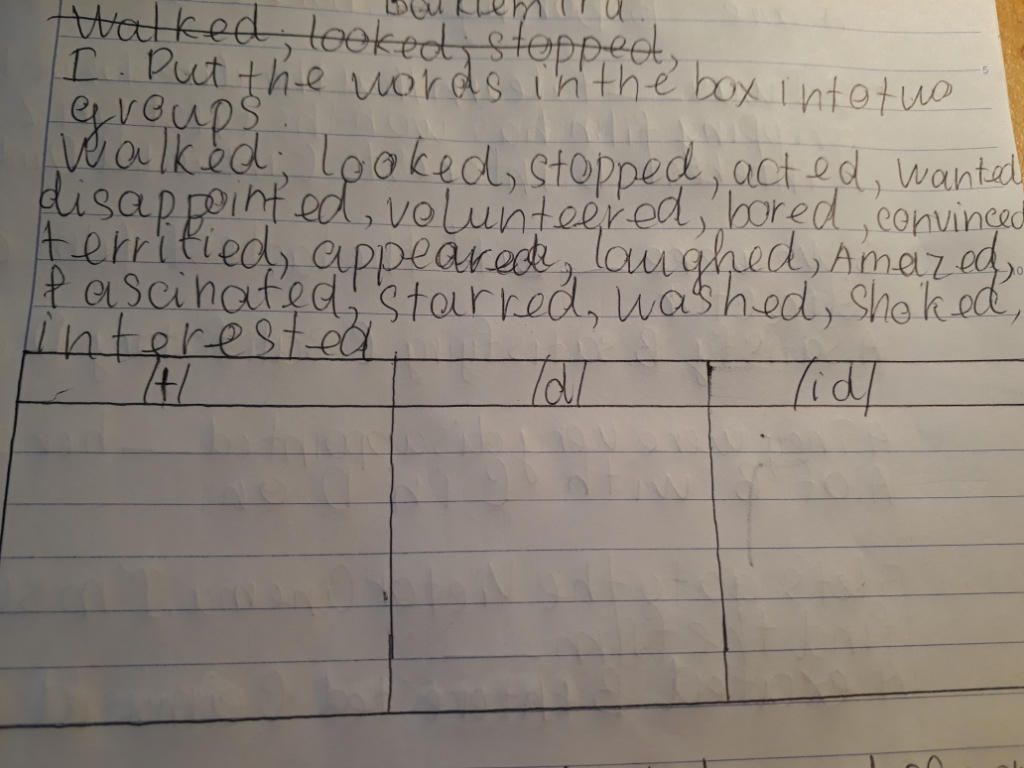 Walked, looked, stopped,
I. Put the words in the box into two
groups.
Walked, looked, stopped, acted, wanted
disappointed, volunteered, bored, convinced
terrified, appeared, laughed, Amazed,
fascinated, starred, washed, shoked,
interested
/t/ /d/ /id/